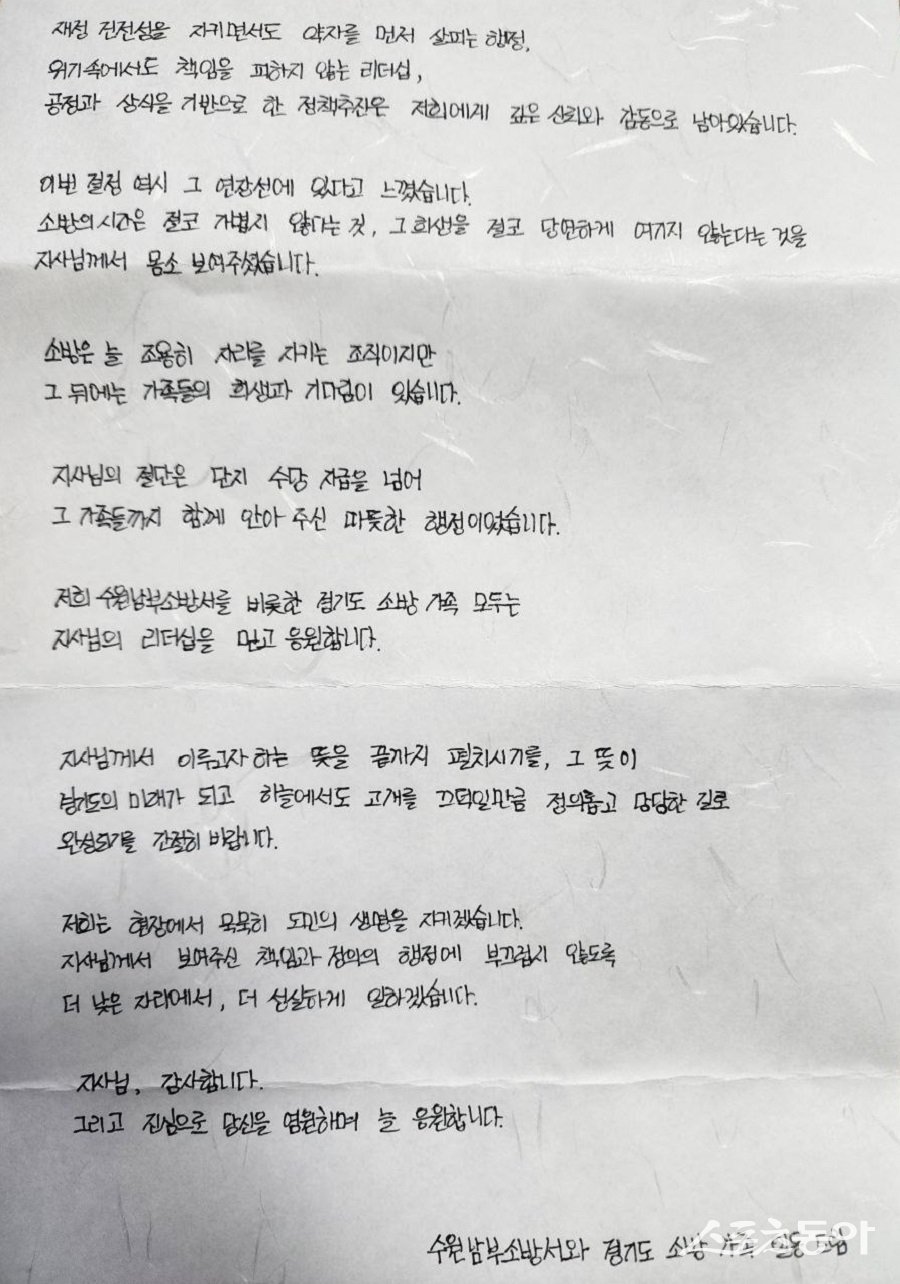 재정 건전성을 지키면서도 약자를 먼저 살피는 행정,
위기속에서도 책임을 피하지 않는 리더십,
공정과 상식을 기반으로 한 정책추진은 저희에게 깊은 신뢰와 감동으로 남아있습니다.
이번 결정 역시 그 연장선에 있다고 느꼈습니다.
소방의 시간은 결코 가볍지 않다는 것, 그 희생을 결코 당연하게 여기지 않는다는 것을
지사님께서 몸소 보여주셨습니다.
소방은 늘 조용히 자리를 지키는 조직이지만
그 뒤에는 가족들의 희생과 기다림이 있습니다.
지사님의 결단은 단지 수당 지급을 넘어
그 가족들까지 함께 안아 주신 따뜻한 행정이었습니다.
저희 수원남부소방서를 비롯한 경기도 소방 가족 모두는
지사님의 리더십을 믿고 응원합니다.
지사님께서 이루고자 하는 뜻을 끝까지 펼치시기를, 그 뜻이
경기도의 미래가 되고 하늘에서도 고개를 끄덕일만큼 정의롭고 당당한 길로
완성되기를 간절히 바랍니다.
저희는 현장에서 묵묵히 도민의 생명을 지키겠습니다.
지사님께서 보여주신 책임과 정의의 행정에 부끄럽지 않도록
더 낮은 자리에서, 더 성실하게 일하겠습니다.
지사님, 감사합니다.
그리고 진심으로 당신을 염원하며 늘 응원합니다.
수원남부소방서와 경기도 소방 가족 일동 드림
스포츠동아